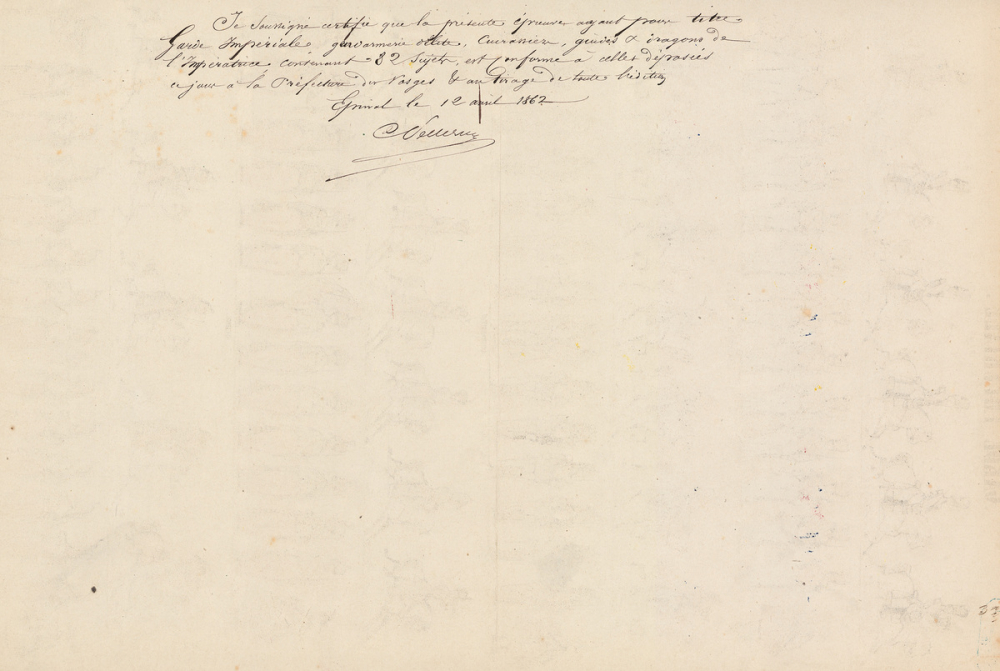 Je soussigné certifie que la présente épreuve ayant pour titre
Garde Impériale, gendarmerie délite, Cuirassiers, guides & dragons de
l'Impératrice contenant 32 Sujets, est conforme à celles déposées
ce jour à la Préfecture des Vosges & au tirage de toute l'édition
Epinal le 12 avril 1862
33